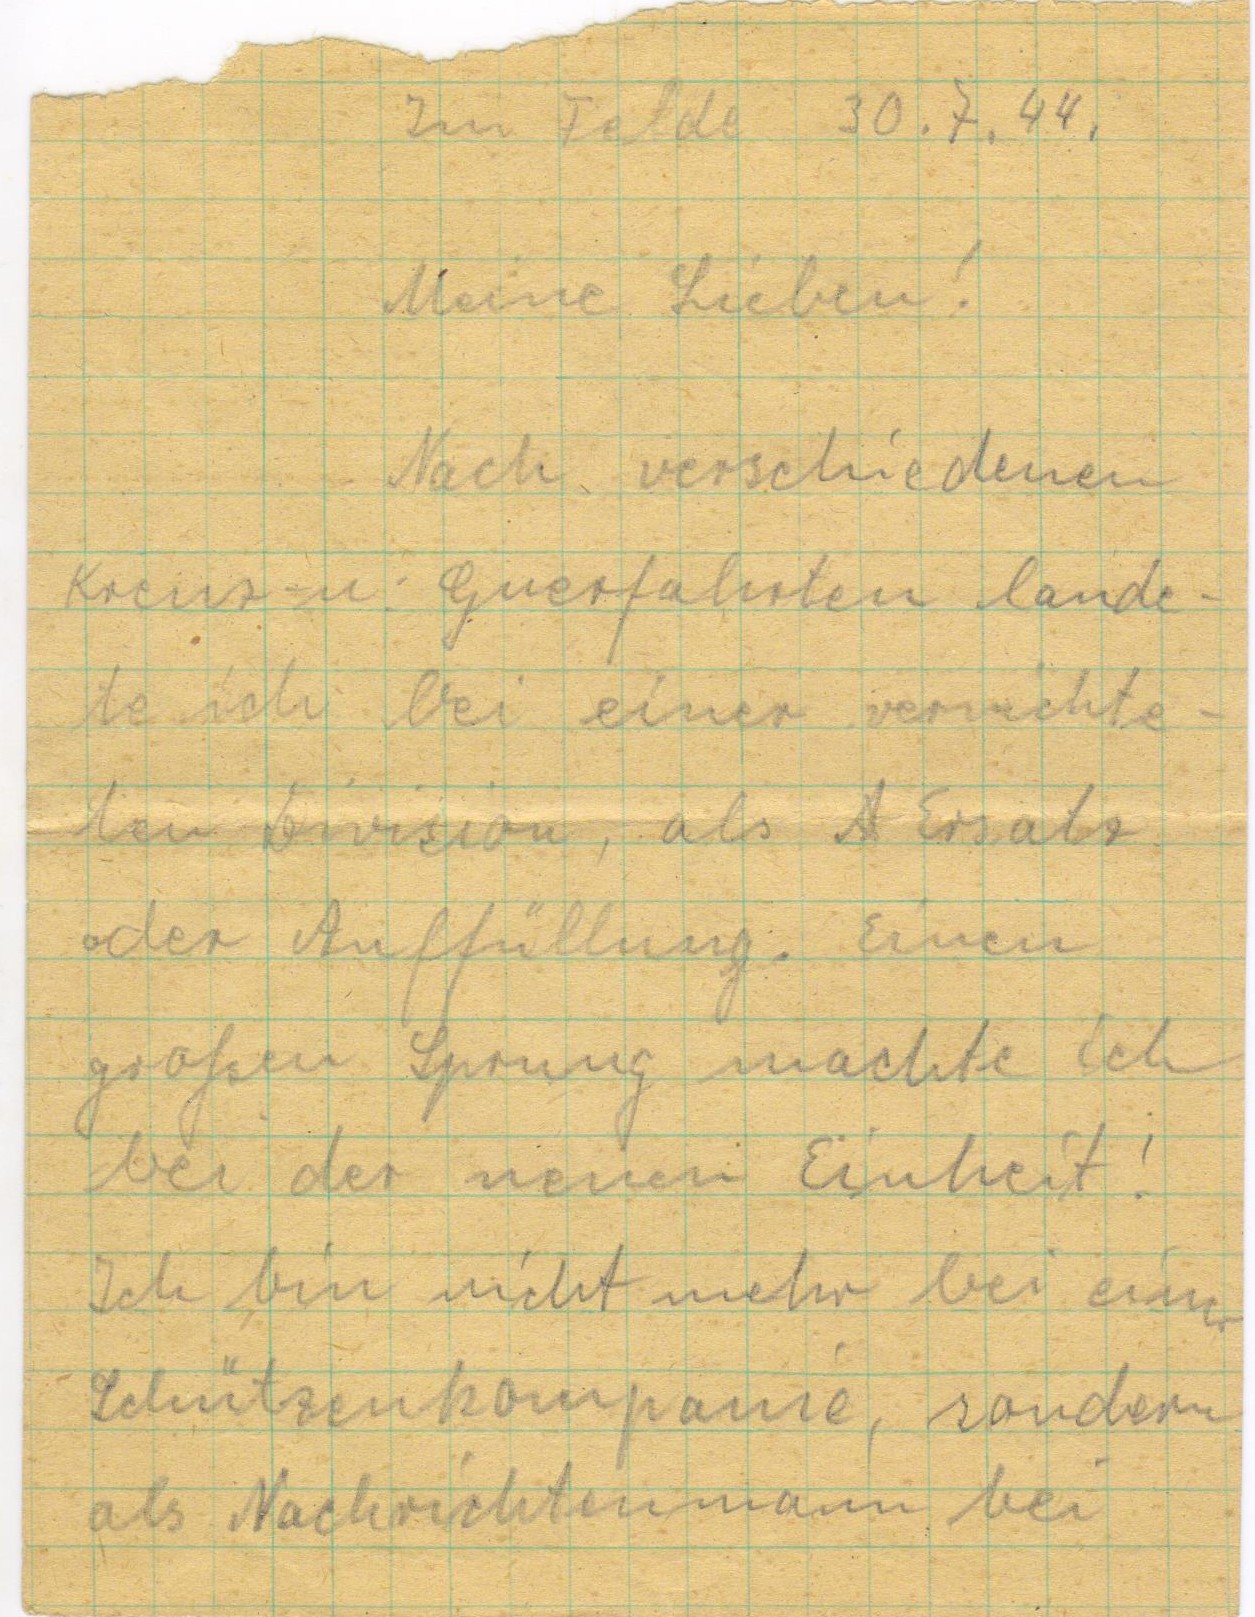 Im Felde 30.7.44.
Meine Lieben!
Nach verschiedenen
Kreuz- u. Querfahrten lande-
te ich bei einer vernichte-
ten Division, als Ersatz
oder Auffüllung. Einen
großen Sprung machte ich
bei der neuen Einheit!
Ich bin nicht mehr bei einer
Schützenkompanie, sondern
als Nachrichtenmann bei